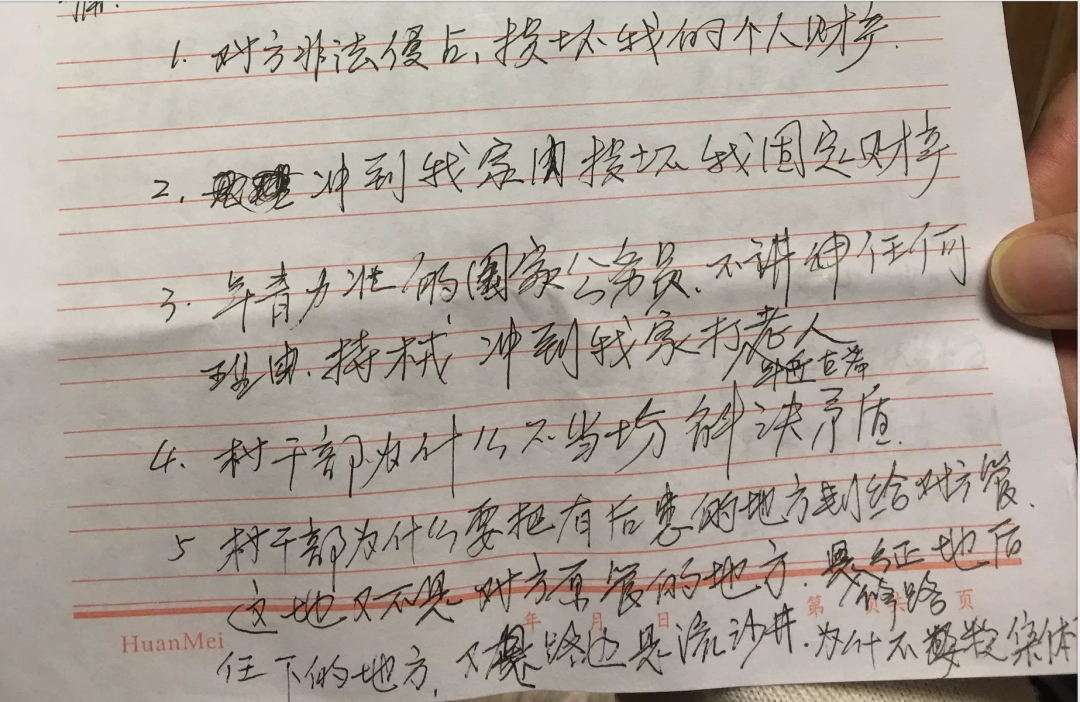 1. 对方非法侵占、损坏我的个人财产.
2. 冲到我家内损坏我固定财产
3. 年青力壮的国家公务员.不讲伸任何
理由.持械冲到我家打老人
年近古希
4. 村干部为什么不当场解决矛盾.
5 村干部为什么要把有后患的地方划给对方管.
这地又不是对方原管的地方.是征地后
修路
年 月 日 第 页 共 页
任下的地方.又是路边是流沙井.为什不集体
HuanMei